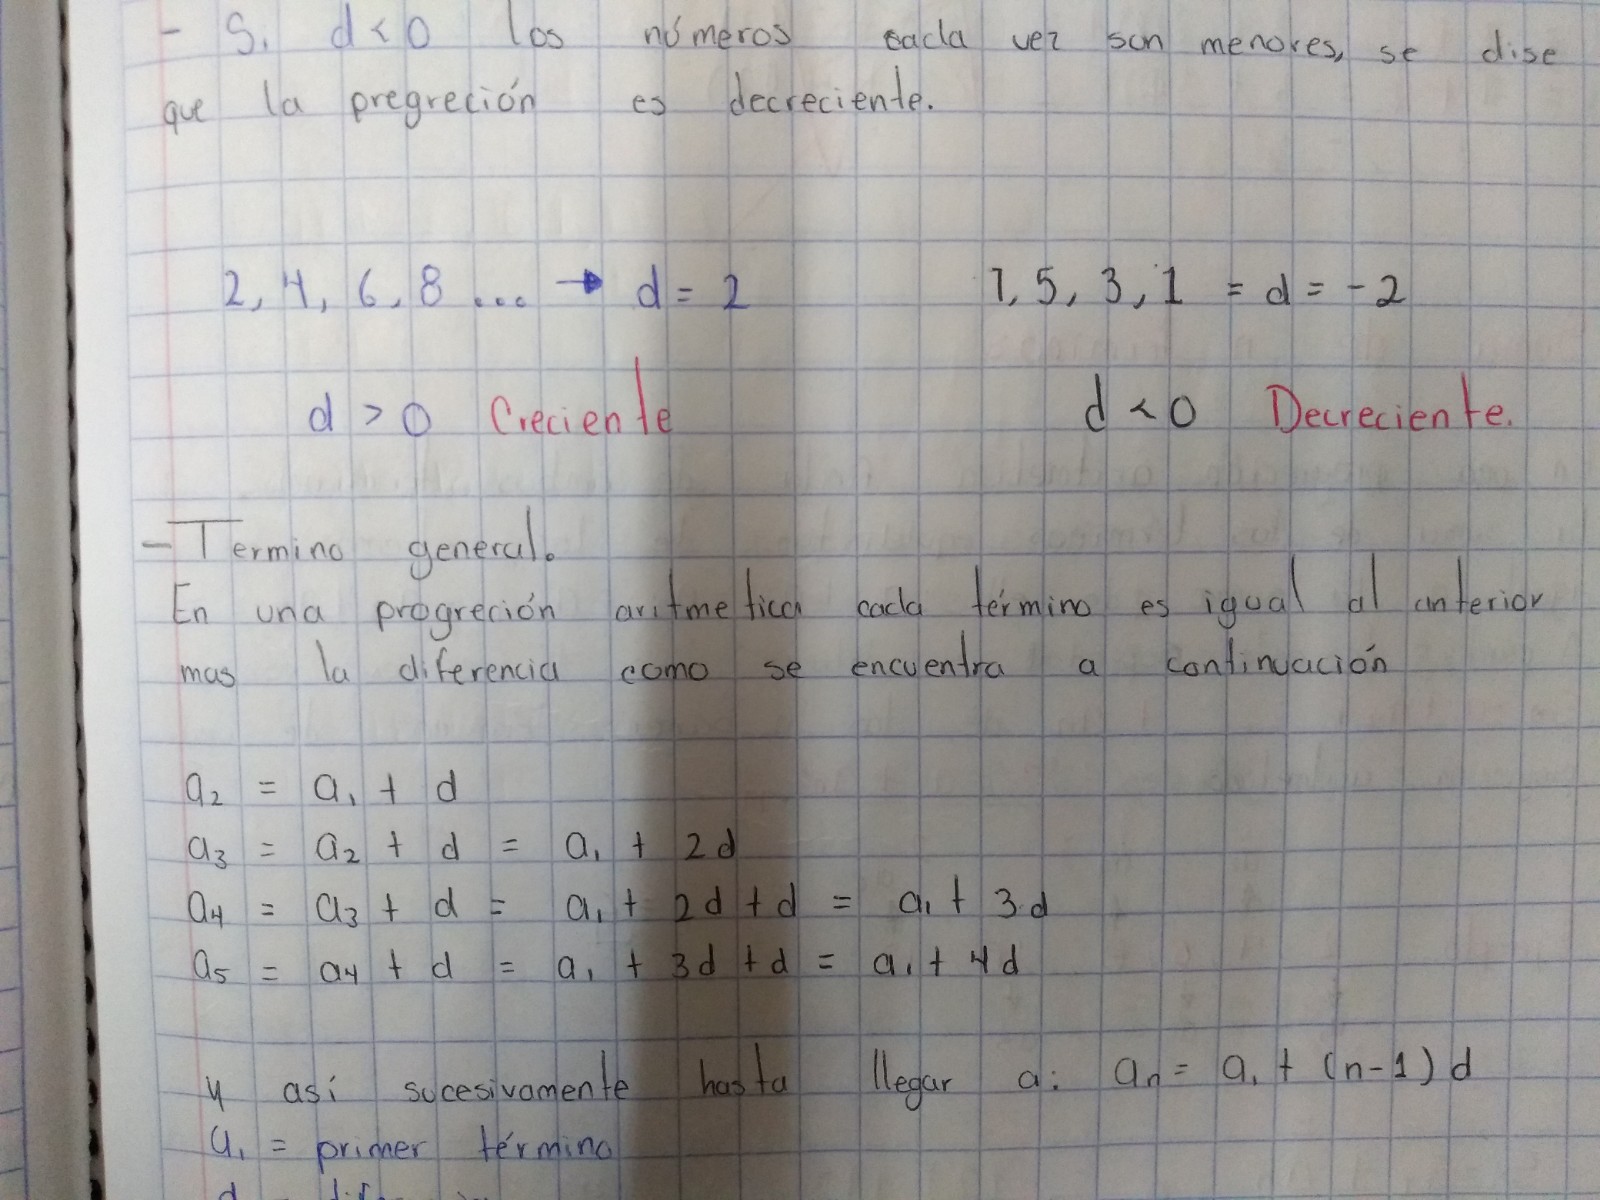 - Si d < 0 los números cada vez son menores, se dise
que la pregreción es decreciente.
2, 4, 6, 8 ... → d = 2 7, 5, 3, 1 = d = -2
d > 0 Creciente d < 0 Decreciente.
- Termino general.
En una progreción aritmetica cada término es igual al anterior
mas la diferencia como se encuentra a continuación
a₂ = a₁ + d
a₃ = a₂ + d = a₁ + 2d
a₄ = a₃ + d = a₁ + 2d + d = a₁ + 3d
a₅ = a₄ + d = a₁ + 3d + d = a₁ + 4d
y así sucesivamente hasta llegar a: aₙ = a₁ + (n-1) d
a₁ = primer término